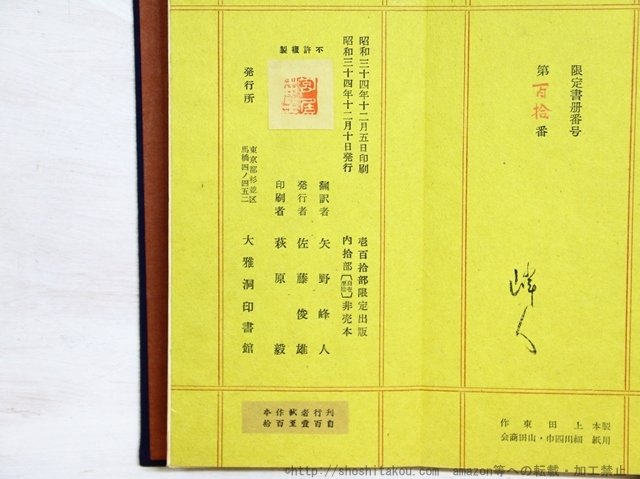 限定書册番号
第百拾番
峰人
製本 上田東作
用紙 細川四巾・山田商会
昭和三十四年十二月五日印刷
昭和三十四年十二月十日発行
不許複製
壱百拾部限定出版
内拾部 非売本
翻訳者 矢野峰人
発行者 佐藤俊雄
印刷者 萩原毅
発行所
東京都杉並区
馬橋四ノ四五二
大雅洞印書館
刊行者試作本
自百壹至百拾
©http://shoshitakou.com amazon等への転載・加工禁止